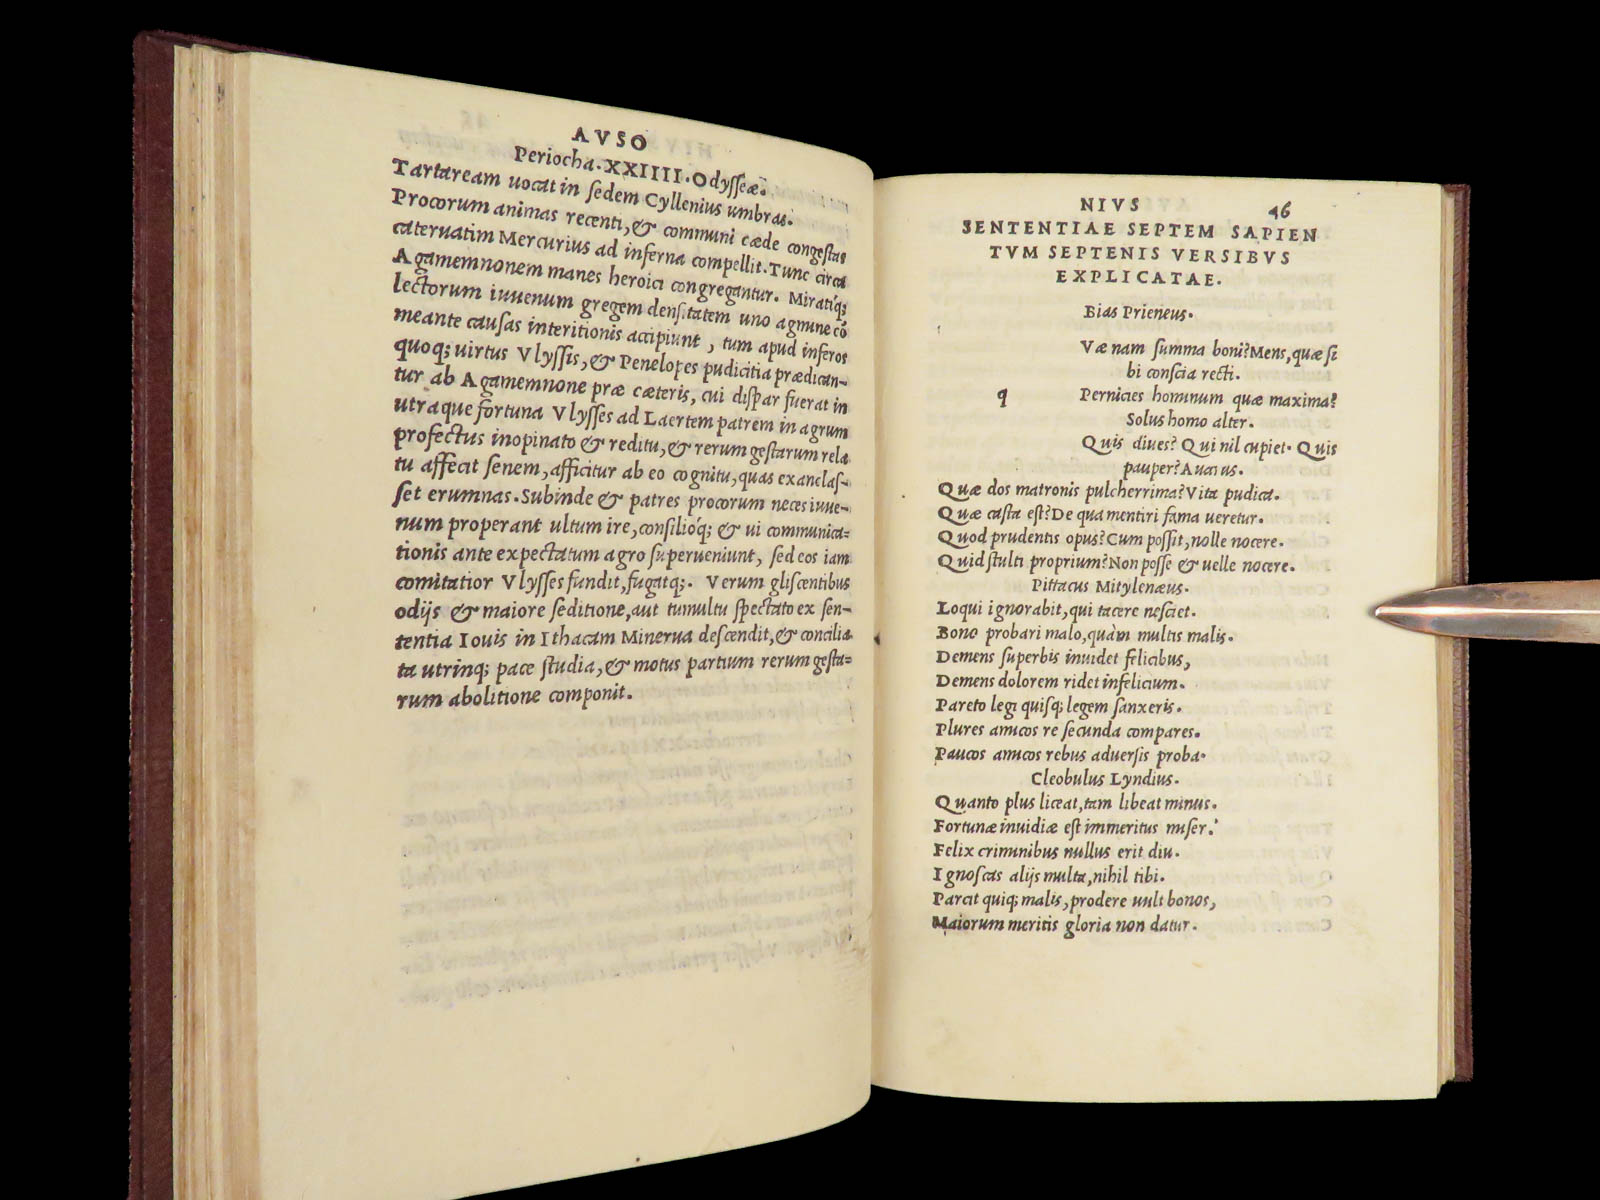 AVSO
Periocha.XXIIII.Odysseæ.
Tartaream uocat in sedem Cyllenius umbras.
Procorum animas recenti,& communi cæde congestas
cateruatim Mercurius ad inferna compellit.Tunc circa
Agamemnonem manes heroici congregantur. Miratiq;
lectorum iuuenum gregem densitatem uno agmine cō
meante causas interitionis accipiunt, tum apud inferos
quoq; uirtus Vlyssis,& Penelopes pudicitia prædican-
tur ab Agamemnone præ cæteris, cui dispar fuerat in
utraque fortuna Vlysses ad Laertem patrem in agrum
profectus inopinato & reditu,& rerum gestarum rela
tu affecit senem,afficitur ab eo cognitu,quas exanclas-
set erumnas.Subinde & patres procorum neces iuue-
num properant ultum ire,consilióq; & ui communica=
tionis ante expectatum agro superueniunt, sed eos iam
comitatior Vlysses fundit,fugatq;. Verum gliscentibus
odijs & maiore seditione,aut tumultu spectato ex sen-
tentia Iouis in Ithacam Minerua descendit,& concilia
ta utrinq; pace studia,& motus partium rerum gesta=
rum abolitione componit.
NIVS 46
SENTENTIAE SEPTEM SAPIEN
TVM SEPTENIS VERSIBVS
EXPLICATAE.
Bias Prieneus.
q Væ nam summa boni?Mens,quæ si
bi conscia recti.
Pernicies hominum quæ maxima?
Solus homo alter.
Quis diues? Qui nil cupiet. Quis
pauper?Auarus.
Quæ dos matronis pulcherrima?Vita pudica.
Quæ casta est?De qua mentiri fama ueretur.
Quod prudentis opus?Cum possit,nolle nocere.
Quid stulti proprium?Non posse & uelle nocere.
Pittacus Mitylenæus.
Loqui ignorabit,qui tacere nesciet.
Bono probari malo,quàm multis malis.
Demens superbis inuidet felicibus,
Demens dolorem ridet infelicium.
Pareto legi quisq; legem sanxeris.
Plures amicos re secunda compares.
Paucos amicos rebus aduersis proba.
Cleobulus Lyndius.
Quanto plus liceat,tam libeat minus.
Fortunæ inuidiæ est immeritus miser.
Felix criminibus nullus erit diu.
Ignoscas alijs multa,nihil tibi.
Parcit quiq; malis,prodere uult bonos,
Maiorum meritis gloria non datur.